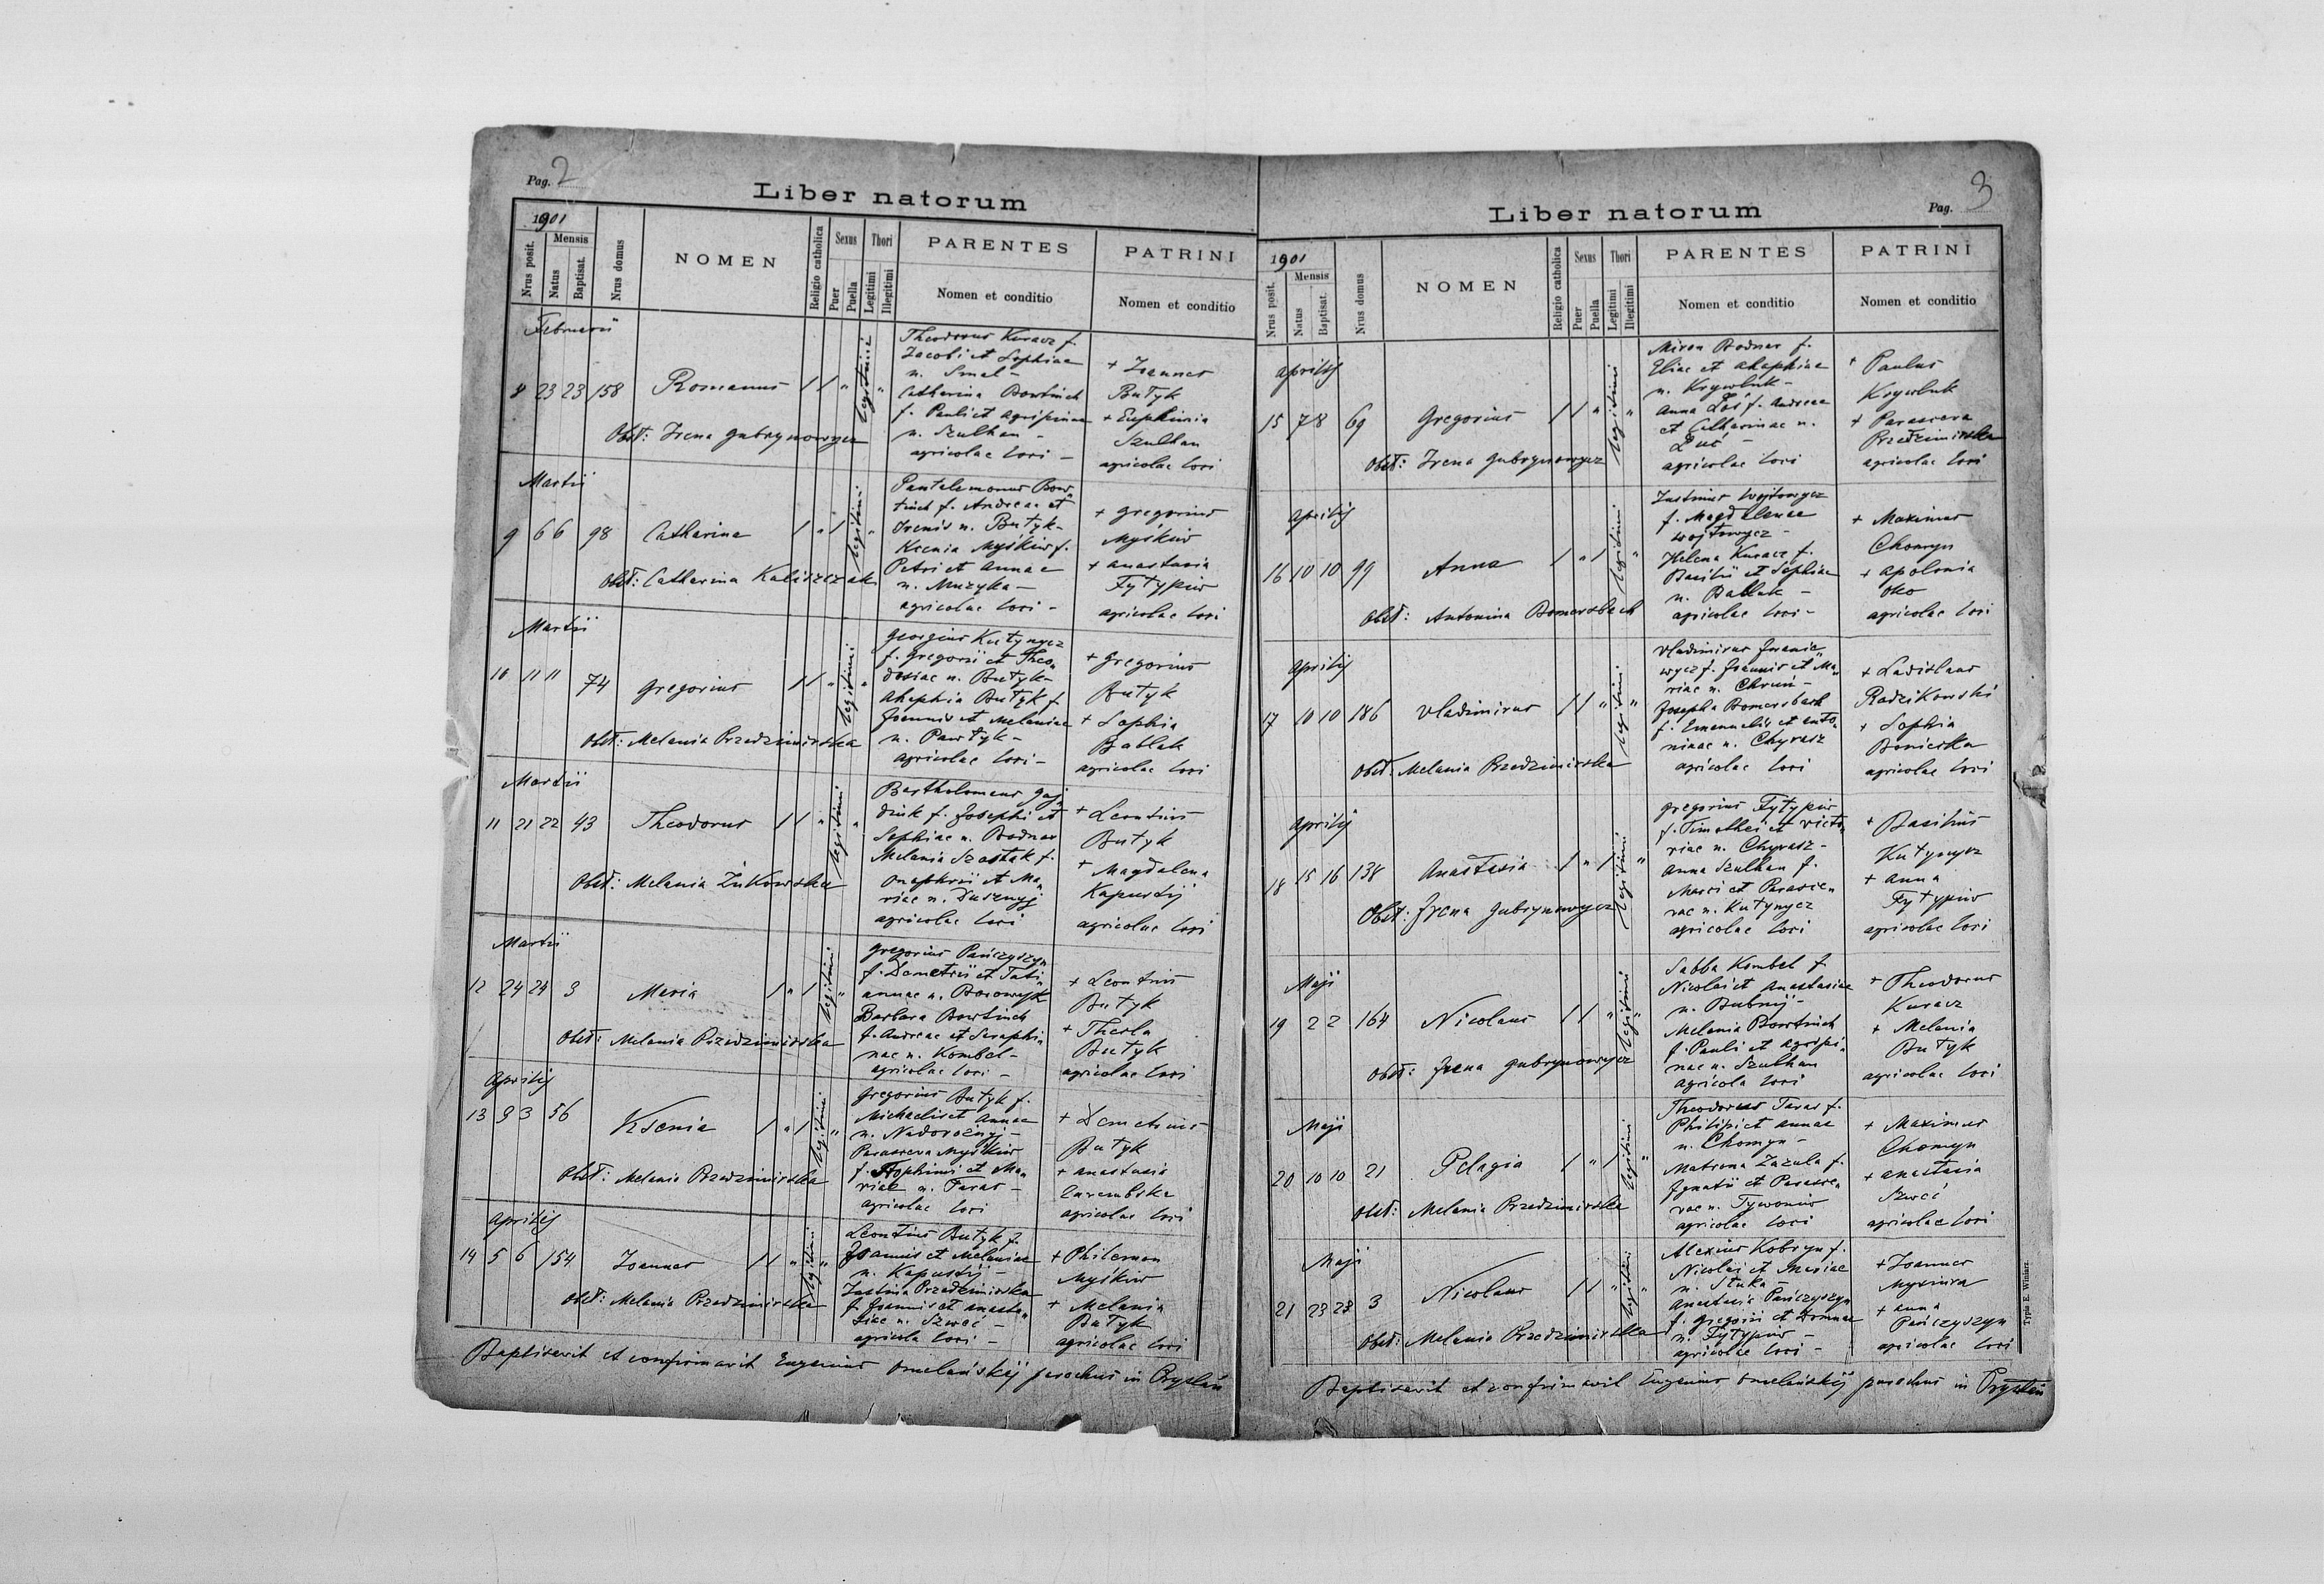 Pag. 2
Liber natorum
1901
Nrus posit.
Mensis
Natus
Baptisat.
Nrus domus
NOMEN
Religio catholica
Sexus
Puer
Puella
Thori
Legitimi
Illegitimi
PARENTES
Nomen et conditio
PATRINI
Nomen et conditio
Februarii
8 23 23 158 Romanus / / " legitimi "
Obst: Irena Gubrynowycz
Theodorus Kuracz f.
Jacobi et Sophiae
n. Smal -
Catharina Bowtriuch
f. Pauli et Agripinae
n. Szulhan -
agricolae loci -
+ Joannes
Butyk
+ Euphimia
Szulhan
agricolae loci
Martii
9 6 6 98 Catharina / " / legitimi "
Obst: Catharina Kaliszczak
Pantalemonus Bow„
triuch f. Andreae et
Irenis n. Butyk -
Ksenia Myśkiw f.
Petri et Annae
n. Muzyka -
agricolae loci -
+ Gregorius
Myśkiw
+ Anastasia
Fytypiw
agricolae loci
Martii
10 11 11 74 Gregorius / / " legitimi "
Obst: Melania Przedzimirska
Georgius Kutynycz
f. Gregorii et Theo„
dosiae n. Butyk -
Ahaphia Butyk f.
Joannis et Melaniae
n. Pawtyk -
agricolae loci -
+ Gregorius
Butyk
+ Sophia
Bablak
agricolae loci
Martii
11 21 22 43 Theodorus / / " legitimi "
Obst: Melania Żukowska
Bartholomeus Gaj„
dziuk f. Josephi et
Sophiae n. Bodnar
Melania Szostak f.
Onuphrii et Ma„
riae n. Dusznyj
agricolae loci
+ Leontius
Butyk
+ Magdalena
Kapustij
agricolae loci
Martii
12 24 24 3 Maria / " / legitimi "
Obst: Melania Przedzimirska
Gregorius Pańczyszyn
f. Demetrii et Tati„
annae n. Borowyk
Barbara Bowtriuch
f. Andreae et Seraphi„
nae n. Kombel -
agricolae loci -
+ Leontius
Butyk
+ Thecla
Butyk
agricolae loci
Aprilij
13 3 3 56 Ksenia / " / legitimi "
Obst: Melania Przedzimirska
Gregorius Butyk f.
Michaelis et Annae
n. Nadorożnyj -
Parasceva Myśkiw
f. Trophimi et Ma„
riae n. Taras -
agricolae loci
+ Demetrius
Butyk
+ Anastasia
Zarembska
agricolae loci
Aprilij
14 5 6 154 Joannes / / " legitimi "
Obst: Melania Przedzimirska
Leontius Butyk f.
Joannis et Melaniae
n. Kapustij -
Justina Przedzimirska
f. Joannis et Anasta„
siae n. Szweć -
agricolae loci -
+ Philemon
Myśkiw
+ Melania
Butyk
agricolae loci
Baptisavit et confirmavit Eugenius Omelański parochus in Prysłup
Liber natorum
Pag. 3
1901
Nrus posit.
Mensis
Natus
Baptisat.
Nrus domus
NOMEN
Religio catholica
Sexus
Puer
Puella
Thori
Legitimi
Illegitimi
PARENTES
Nomen et conditio
PATRINI
Nomen et conditio
Aprilij
15 7 8 69 Gregorius / / " legitimi "
Obst: Irena Gubrynowycz
Miron Bodnar f.
Eliae et Ahaphiae
n. Krywluk -
Anna Łoś f. Andreae
et Catharinae n.
agricolae loci
+ Paulus
Krywluk
+ Parasceva
Przedzimirska
agricolae loci
Aprilij
16 10 10 99 Anna / " / legitimi "
Obst: Antonina Bomersbach
Justinus Wojtowycz
f. Magdalenae
Wojtowycz -
Helena Kuracz f.
Basilii et Sophiae
n. Bablak -
agricolae loci -
+ Maximus
Chomyn
+ Apolonia
Oko
agricolae loci
Aprilij
17 10 10 186 Vladimirus / / " legitimi "
Obst: Melania Przedzimirska
Vladimirus Joanie„
wycz f. Joannis et Ma„
riae n. Chruń -
Josepha Bomersbach
f. Emanuelis et Anto„
ninae n. Chyrasz
agricolae loci
+ Ladislaus
Radzikowski
+ Sophia
Baniecka
agricolae loci
Aprilij
18 15 16 138 Anastasia / " / legitimi "
Obst: Irena Gubrynowycz
Gregorius Fytypiw
f. Timothei et Victo„
riae n. Chyrasz -
Anna Szulhan f.
Marci et Parasce„
vae n. Kutynycz
agricolae loci
+ Basilius
Kutynycz
+ Anna
Fytypiw
agricolae loci
Maji
19 2 2 164 Nicolaus / / " legitimi "
Obst: Irena Gubrynowycz
Sabba Kombel f.
Nicolai et Anastasiae
n. Bubnij -
Melania Bowtriuch
f. Pauli et Agripi„
nae n. Szulhan
agricola loci
+ Theodorus
Kuracz
+ Melania
Butyk
agricolae loci
Maji
20 10 10 21 Pelagia / " / legitimi "
Obst: Melania Przedzimirska
Theodorus Taras f.
Philipi et Annae
n. Chomyn -
Matrona Zazula f.
Ignatii et Parasce„
vae n. Tywoniw
agricolae loci
+ Maximus
Chomyn
+ Anastasia
Szweć
agricolae loci
Maji
21 23 23 3 Nicolaus / / " legitimi "
Obst: Melania Przedzimirska
Alexius Kobryn f.
Nicolai et Mariae
n. Stuka -
Anastasia Pańczyszyn
f. Gregorii et Domnae
n. Fytypiw -
agricolae loci -
+ Joannes
+ Anna
Pańczyszyn
agricolae loci
Baptisavit et confirmavit Eugenius Omelański parochus in Prysłup
Typis E. Winiarz.